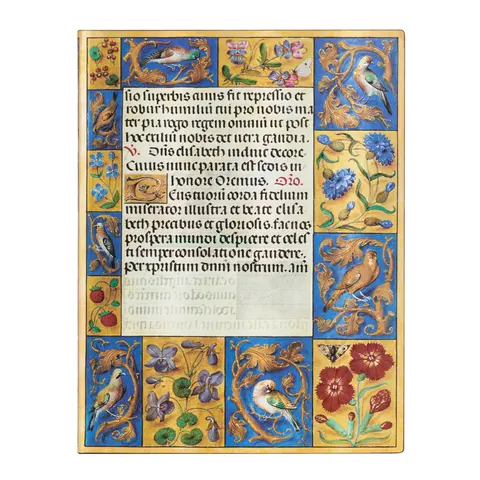 sio superbis cuius fit repressio et
robur humilium cui pro nobis ma
ter pia rogo regem omnium ut post
hoc exilium nobis det uera gaudia.
V. Dñs elisabeth induit decore
Cuius nunc parata est sedis in
honore Oremus. Oro.
corda fidelium
miserator illustra et beate elisa
beth precibus et gloriosis fac nos
prospera mundi despicere et celes
ti semper consolatione gaudere.
Per xpristum dnm nostrum. am